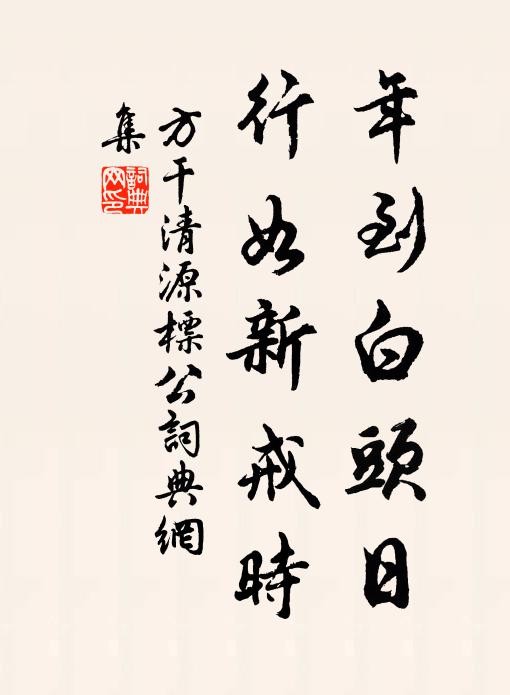 年到白頭日
行如新戒時
方干清源標公詞典網
集
詞典网印